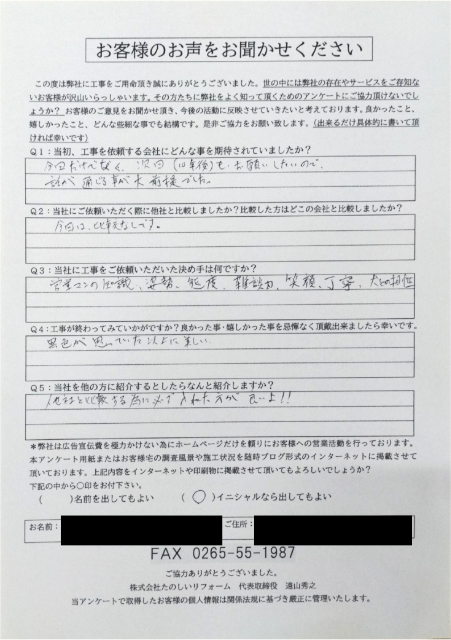 お客様のお声をお聞かせください
この度は弊社に工事をご用命頂き誠にありがとうございました。世の中には弊社の存在やサービスをご存知な
いお客様が沢山いらっしゃいます。その方たちに弊社をよく知って頂くためのアンケートにご協力頂けないでし
ょうか？ お客様のご意見をお聞かせ頂き、今後の活動に反映させていきたいと考えております。良かったこと、
嬉しかったこと、どんな些細な事でも結構です。是非ご協力をお願い致します。(出来るだけ具体的に書いて頂
ければ幸いです)
Q1：当初、工事を依頼する会社にどんな事を期待されていましたか？
今回だけでなく、次回(10年後)もお願いしたいので、
話が通じる事が大前提でした。
Q2：当社にご依頼いただく際に他社と比較しましたか？比較した方はどこの会社と比較しましたか？
今回は、比較なしです。
Q3：当社に工事をご依頼いただいた決め手は何ですか？
営業マンの知識、姿勢、態度、雑談力、笑顔、丁寧、犬との相性
Q4：工事が終わってみていかがですか？良かった事・嬉しかった事を忌憚なく頂戴出来ましたら幸いです。
黒色が思っていた以上に美しい
Q5：当社を他の方に紹介するとしたらなんと紹介しますか？
他社と比較する為に必ず入れた方が良いよ!!
＊弊社は広告宣伝費を極力かけない為にホームページだけを頼りにお客様への営業活動を行っております。
本アンケート用紙またはお客様宅の調査風景や施工状況を随時ブログ形式のインターネットに掲載させて
頂いております。上記内容をインターネットや印刷物に掲載させて頂いてもよろしいでしょうか？
下記の中から〇印をお付下さい。
(　　)名前を出してもよい　(〇)イニシャルなら出してもよい
お名前： ご住所：
FAX 0265-55-1987
ご協力ありがとうございました。
株式会社たのしいリフォーム　代表取締役　遠山秀之
当アンケートで取得したお客様の個人情報は関係法規に基づき厳正に管理いたします。